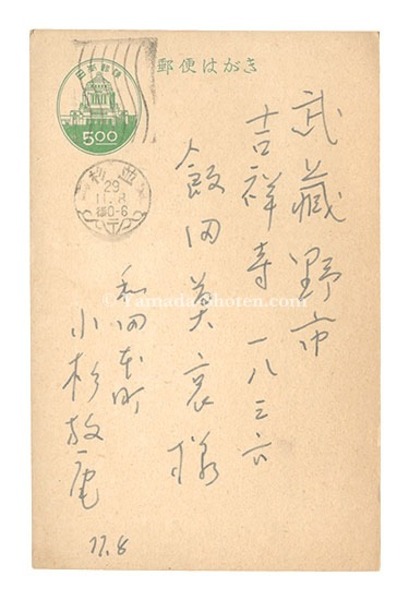 郵便はがき
日本郵便
5.00
杉並
29
11.8
后0-6
武蔵野市
吉祥寺一八三六
飯田美哀様
和田本町
小杉放庵
11.8
© YamadaShoten.com